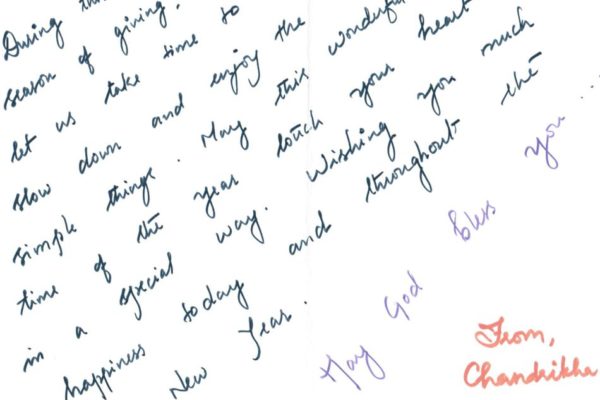 During
season of giving,
let us take time to
slow down and enjoy the
simple things. May this wonderful
time of the year touch your heart
in a special way. Wishing you much
happiness today and throughout the
New Year.
May God bless you...
From,
Chandrikha